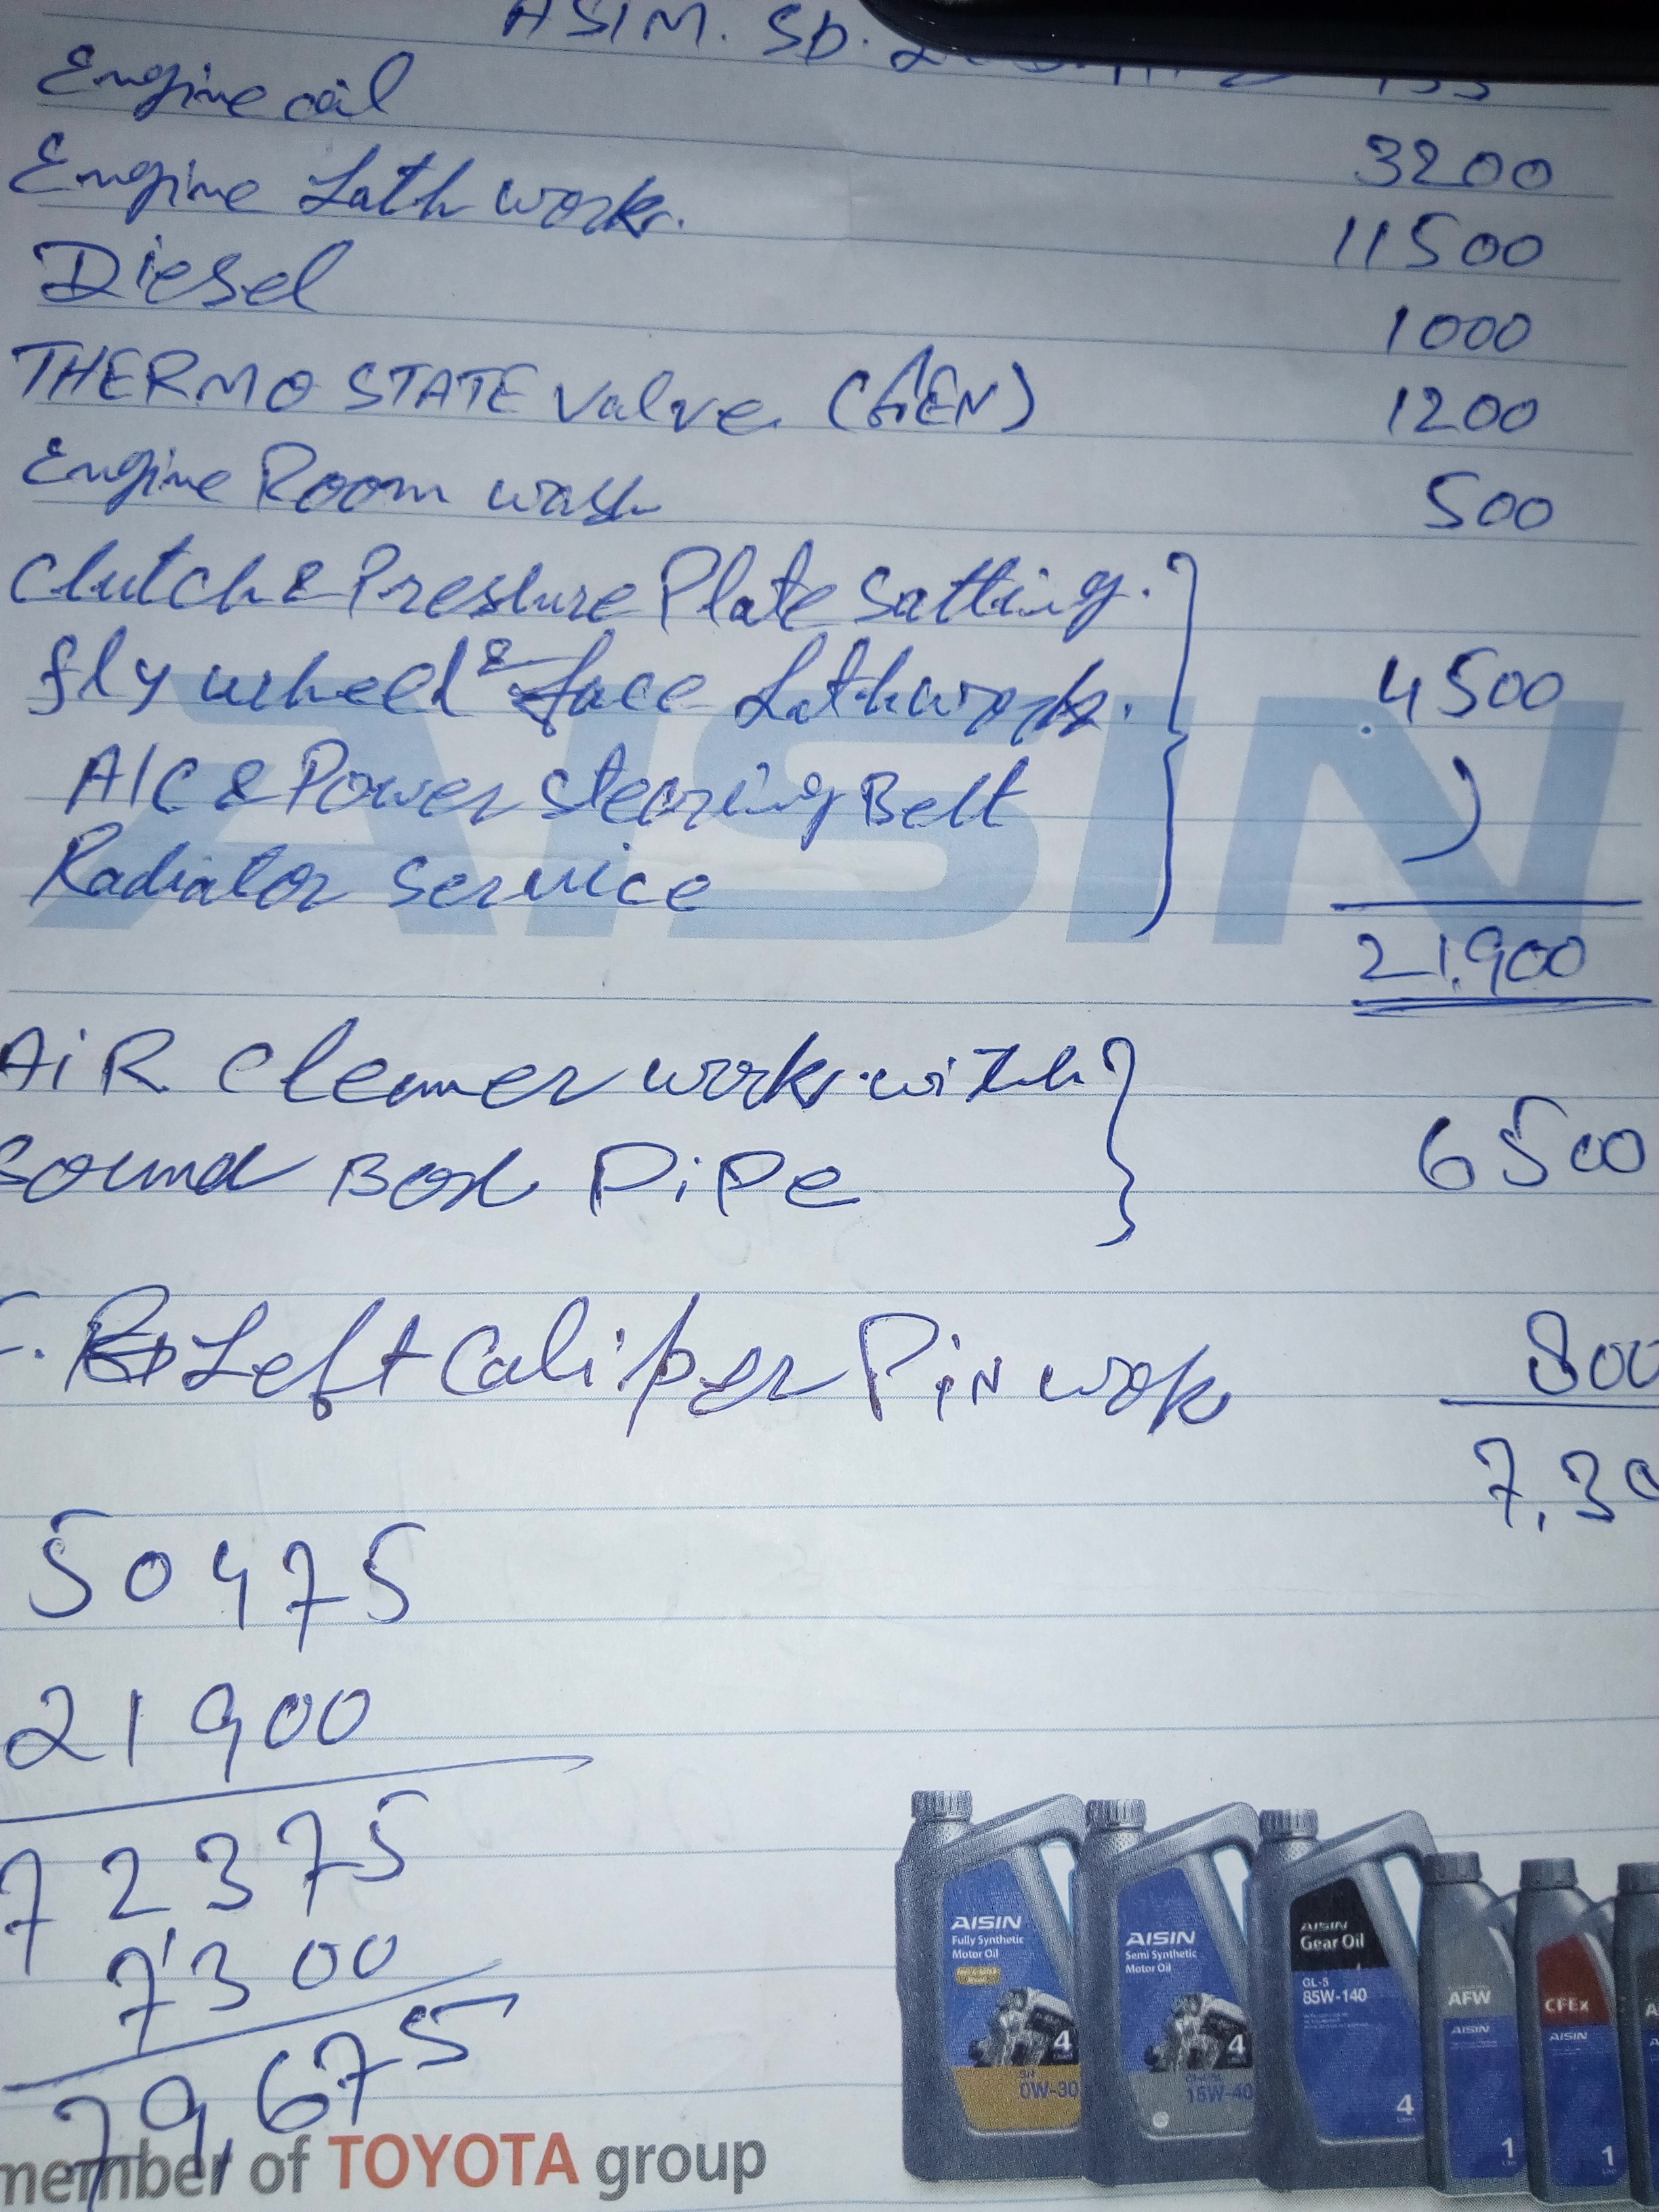 ASIM. SD.
Engine oil 3200
Engine Lath work. 11500
Diesel 1000
THERMO STATE Valve (GEN) 1200
Engine Room wash 500
Clutch & Pressure Plate Satting.
fly wheel & face Lath work. 4500
A/C & Power stearing Belt
Radiator service
21.900
AISIN
AiR Cleaner work with
Sound Box PiPe 6500
Left Caliper Pin work 800
7,30
50475
21900
72375
7300
79,675
AISIN
Fully Synthetic
Motor Oil
4
0W-30
AISIN
Semi Synthetic
Motor Oil
4
15W-40
AISIN
Gear Oil
GL-5
85W-140
4
AFW
AISIN
1
CFEx
AISIN
1
member of TOYOTA group